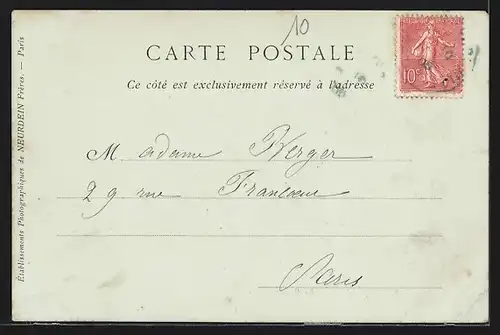 10
CARTE POSTALE
Ce côté est exclusivement réservé à l'adresse
10c
Madame Kerger
29 rue Francœur
Paris
Établissements Photographiques de NEURDEIN Frères. — Paris